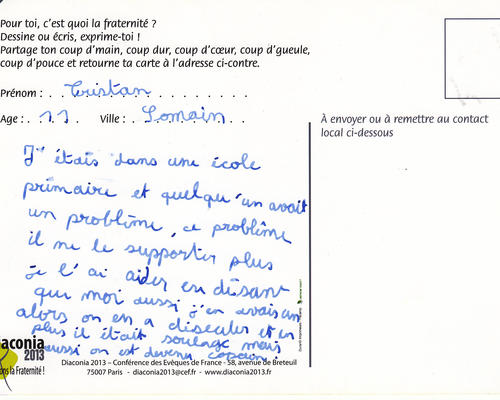 Pour toi, c'est quoi la fraternité ?
Dessine ou écris, exprime-toi !
Partage ton coup d'main, coup dur, coup d'cœur, coup d'gueule,
coup d'pouce et retourne ta carte à l'adresse ci-contre.
Prénom : Tristan
Age : 11 Ville : Somain
À envoyer ou à remettre au contact
local ci-dessous
J' étais dans une école
primaire et quelqu'un avait
un problème, ce problème
il ne le supporter plus
je l'ai aider en disant
que moi aussi j'en avais un
alors on en a discuter et en
plus il était soulage mais
aussi on est devenu copain.
iaconia
2013
ons la Fraternité !
Diaconia 2013 – Conférence des Evêques de France - 58, avenue de Breteuil
75007 Paris - diaconia2013@cef.fr - www.diaconia2013.fr